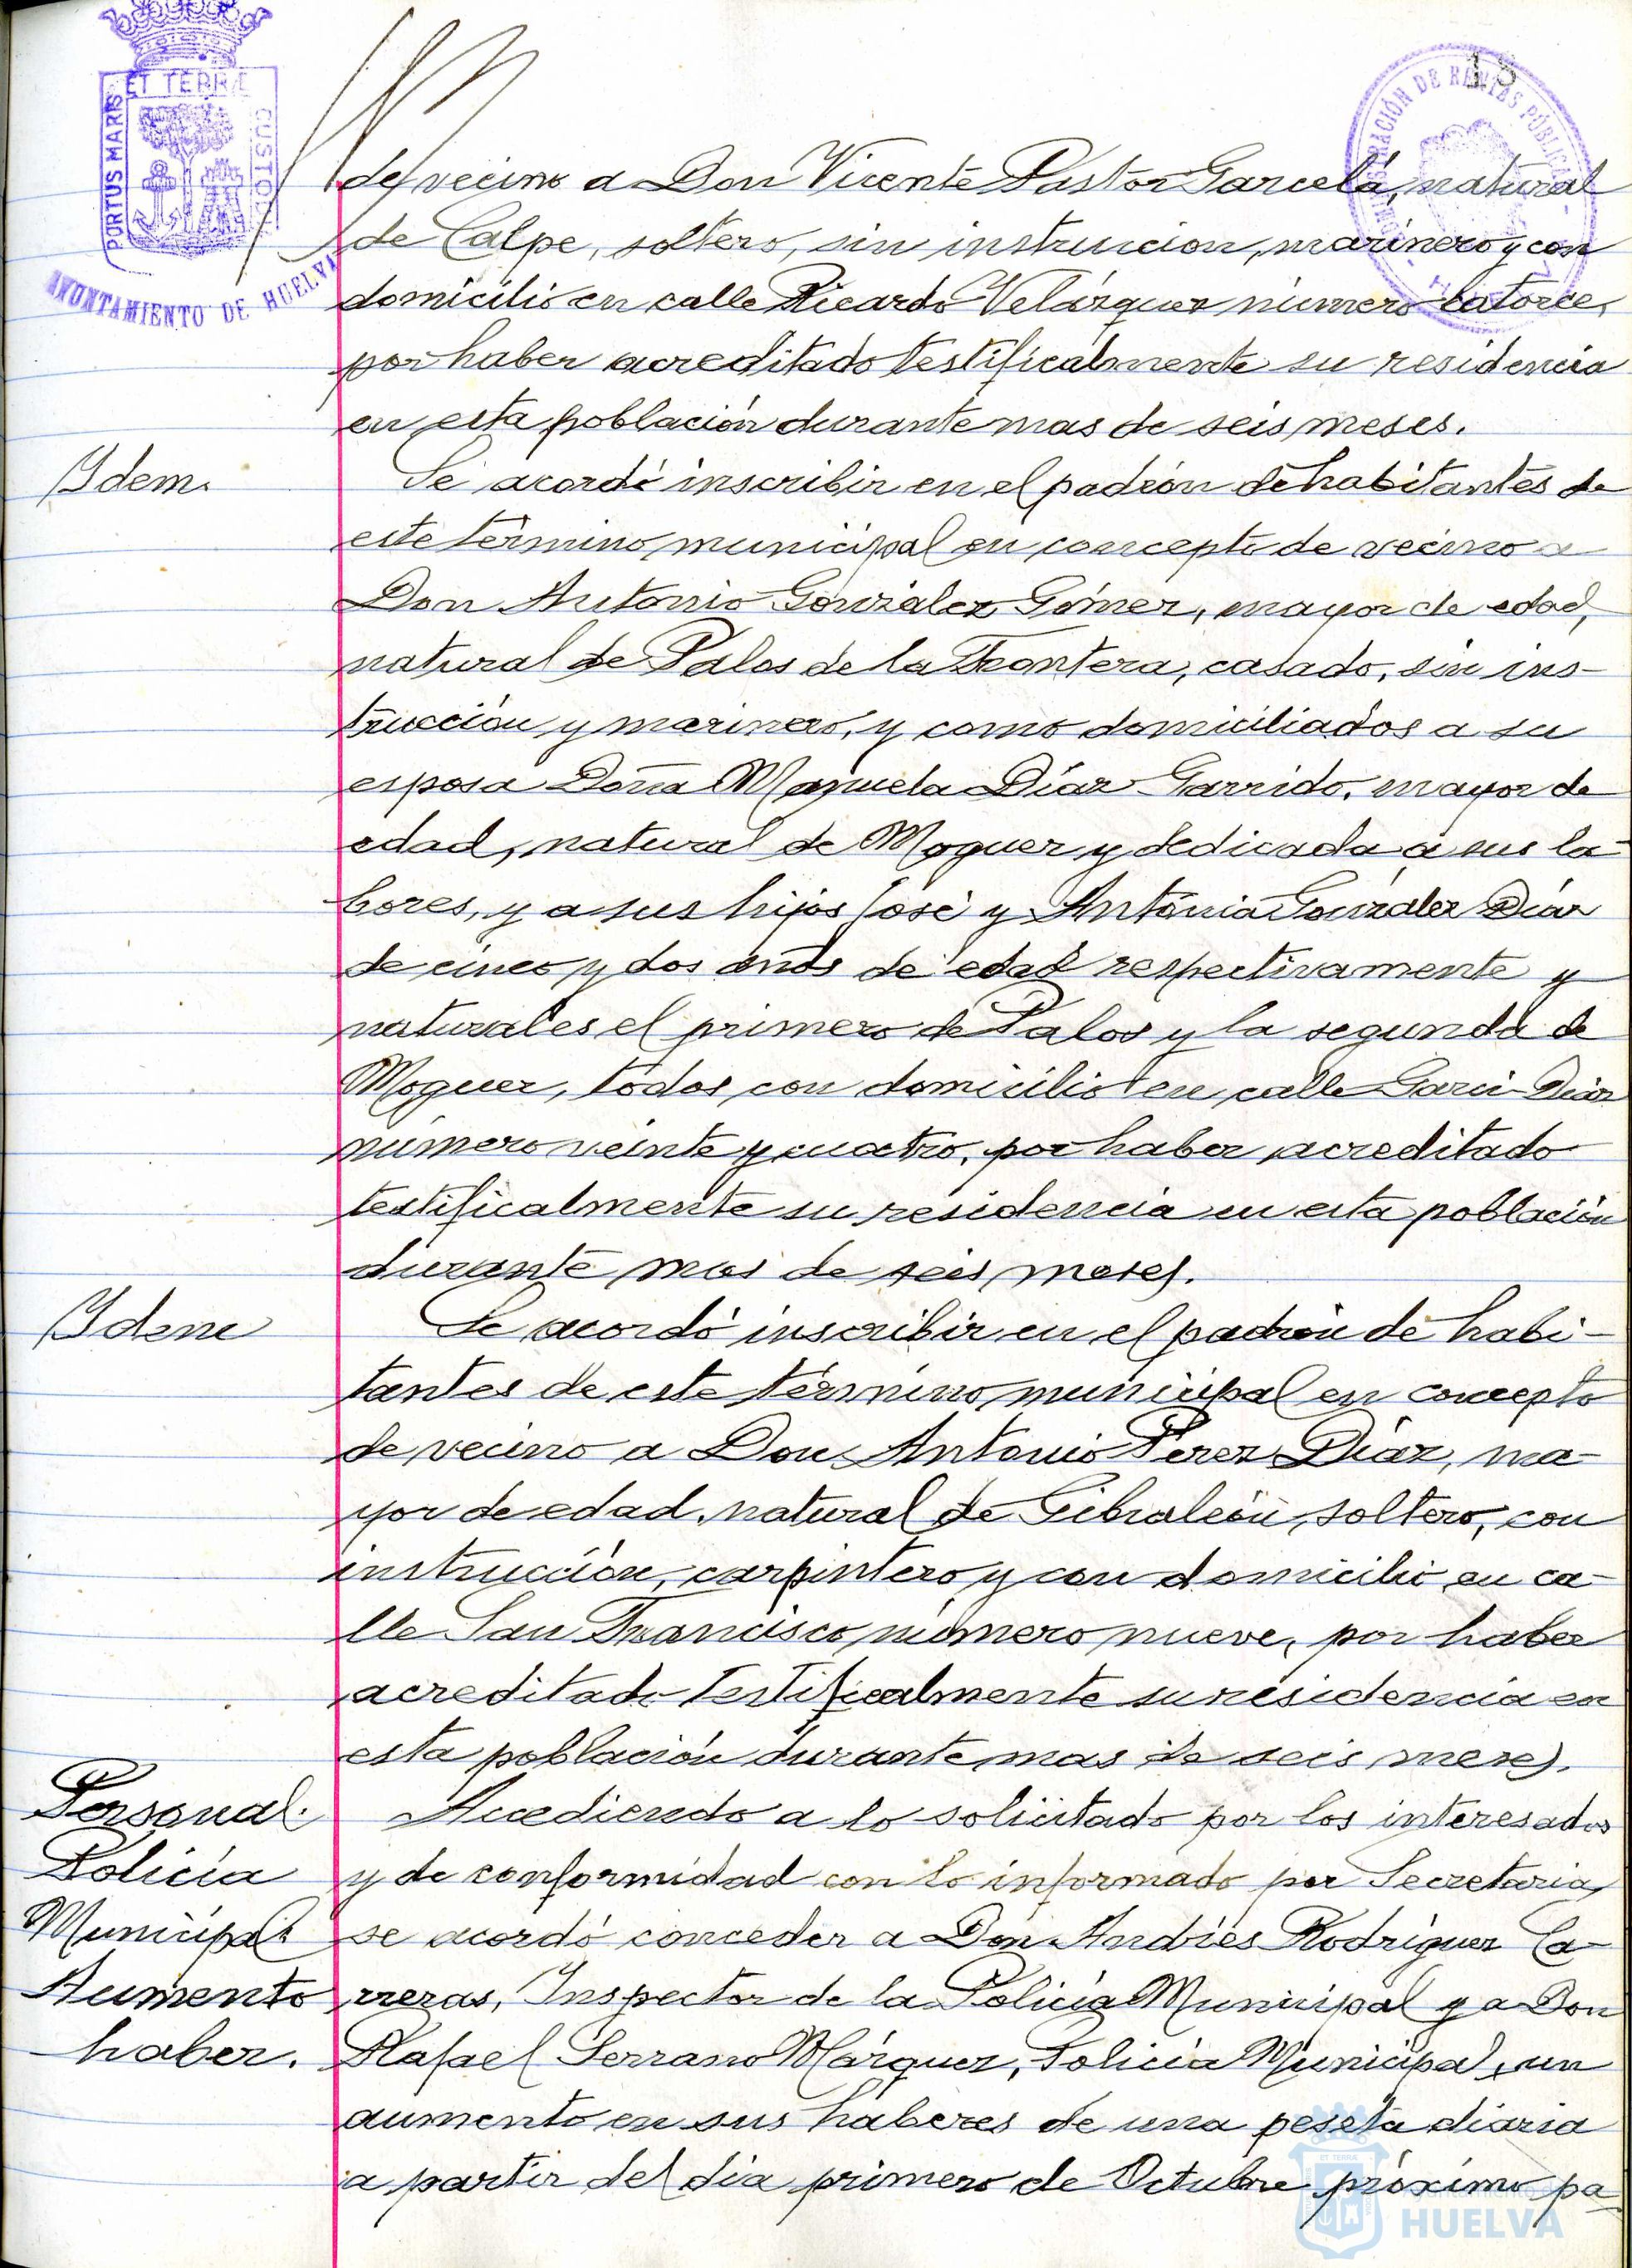 PORTUS MARIS ET TERRÆ CUSTODIA
AYUNTAMIENTO DE HUELVA
18
de vecino a Don Vicente Pastor Garcelá, natural
de Calpe, soltero, sin instrucion, marinero y con
domicilio en calle Ricardo Velázquez número catorce,
por haber acreditado testificalmente su residencia
en esta población durante mas de seis meses.
Idem.
Se acordó inscribir en el padrón de habitantes de
este término municipal en concepto de vecino a
Don Antonio González Gómez, mayor de edad,
natural de Palos de la Frontera, casado, sin ins-
trucción y marinero, y como domiciliados a su
esposa Doña Manuela Díaz Garrido, mayor de
edad, natural de Moguer y dedicada a sus la-
bores, y a sus hijos José y Antonia González Díaz
de cinco y dos años de edad respectivamente y
naturales el primero de Palos y la segunda de
Moguer, todos con domicilio en calle Garci-Díaz
número veinte y cuatro, por haber acreditado
testificalmente su residencia en esta población
durante mas de seis meses.
Idem
Se acordó inscribir en el padrón de habi-
tantes de este término municipal en concepto
de vecino a Don Antonio Pérez Díaz, ma-
yor de edad, natural de Gibraleón, soltero, con
instrucción, carpintero y con domicilio en ca-
lle San Francisco número nueve, por haber
acreditado testificalmente su residencia en
esta población durante mas de seis meses.
Personal.
Policía
Municipal
Aumento
haber.
Accediendo a lo solicitado por los interesados
y de conformidad con lo informado por Secretaria,
se acordó conceder a Don Andrés Rodríguez Ca-
rreras, Inspector de la Policía Municipal y a Don
Rafael Serrano Márquez, Policía Municipal, un
aumento en sus haberes de una peseta diaria
a partir del día primero de Octubre próximo pa-
HUELVA